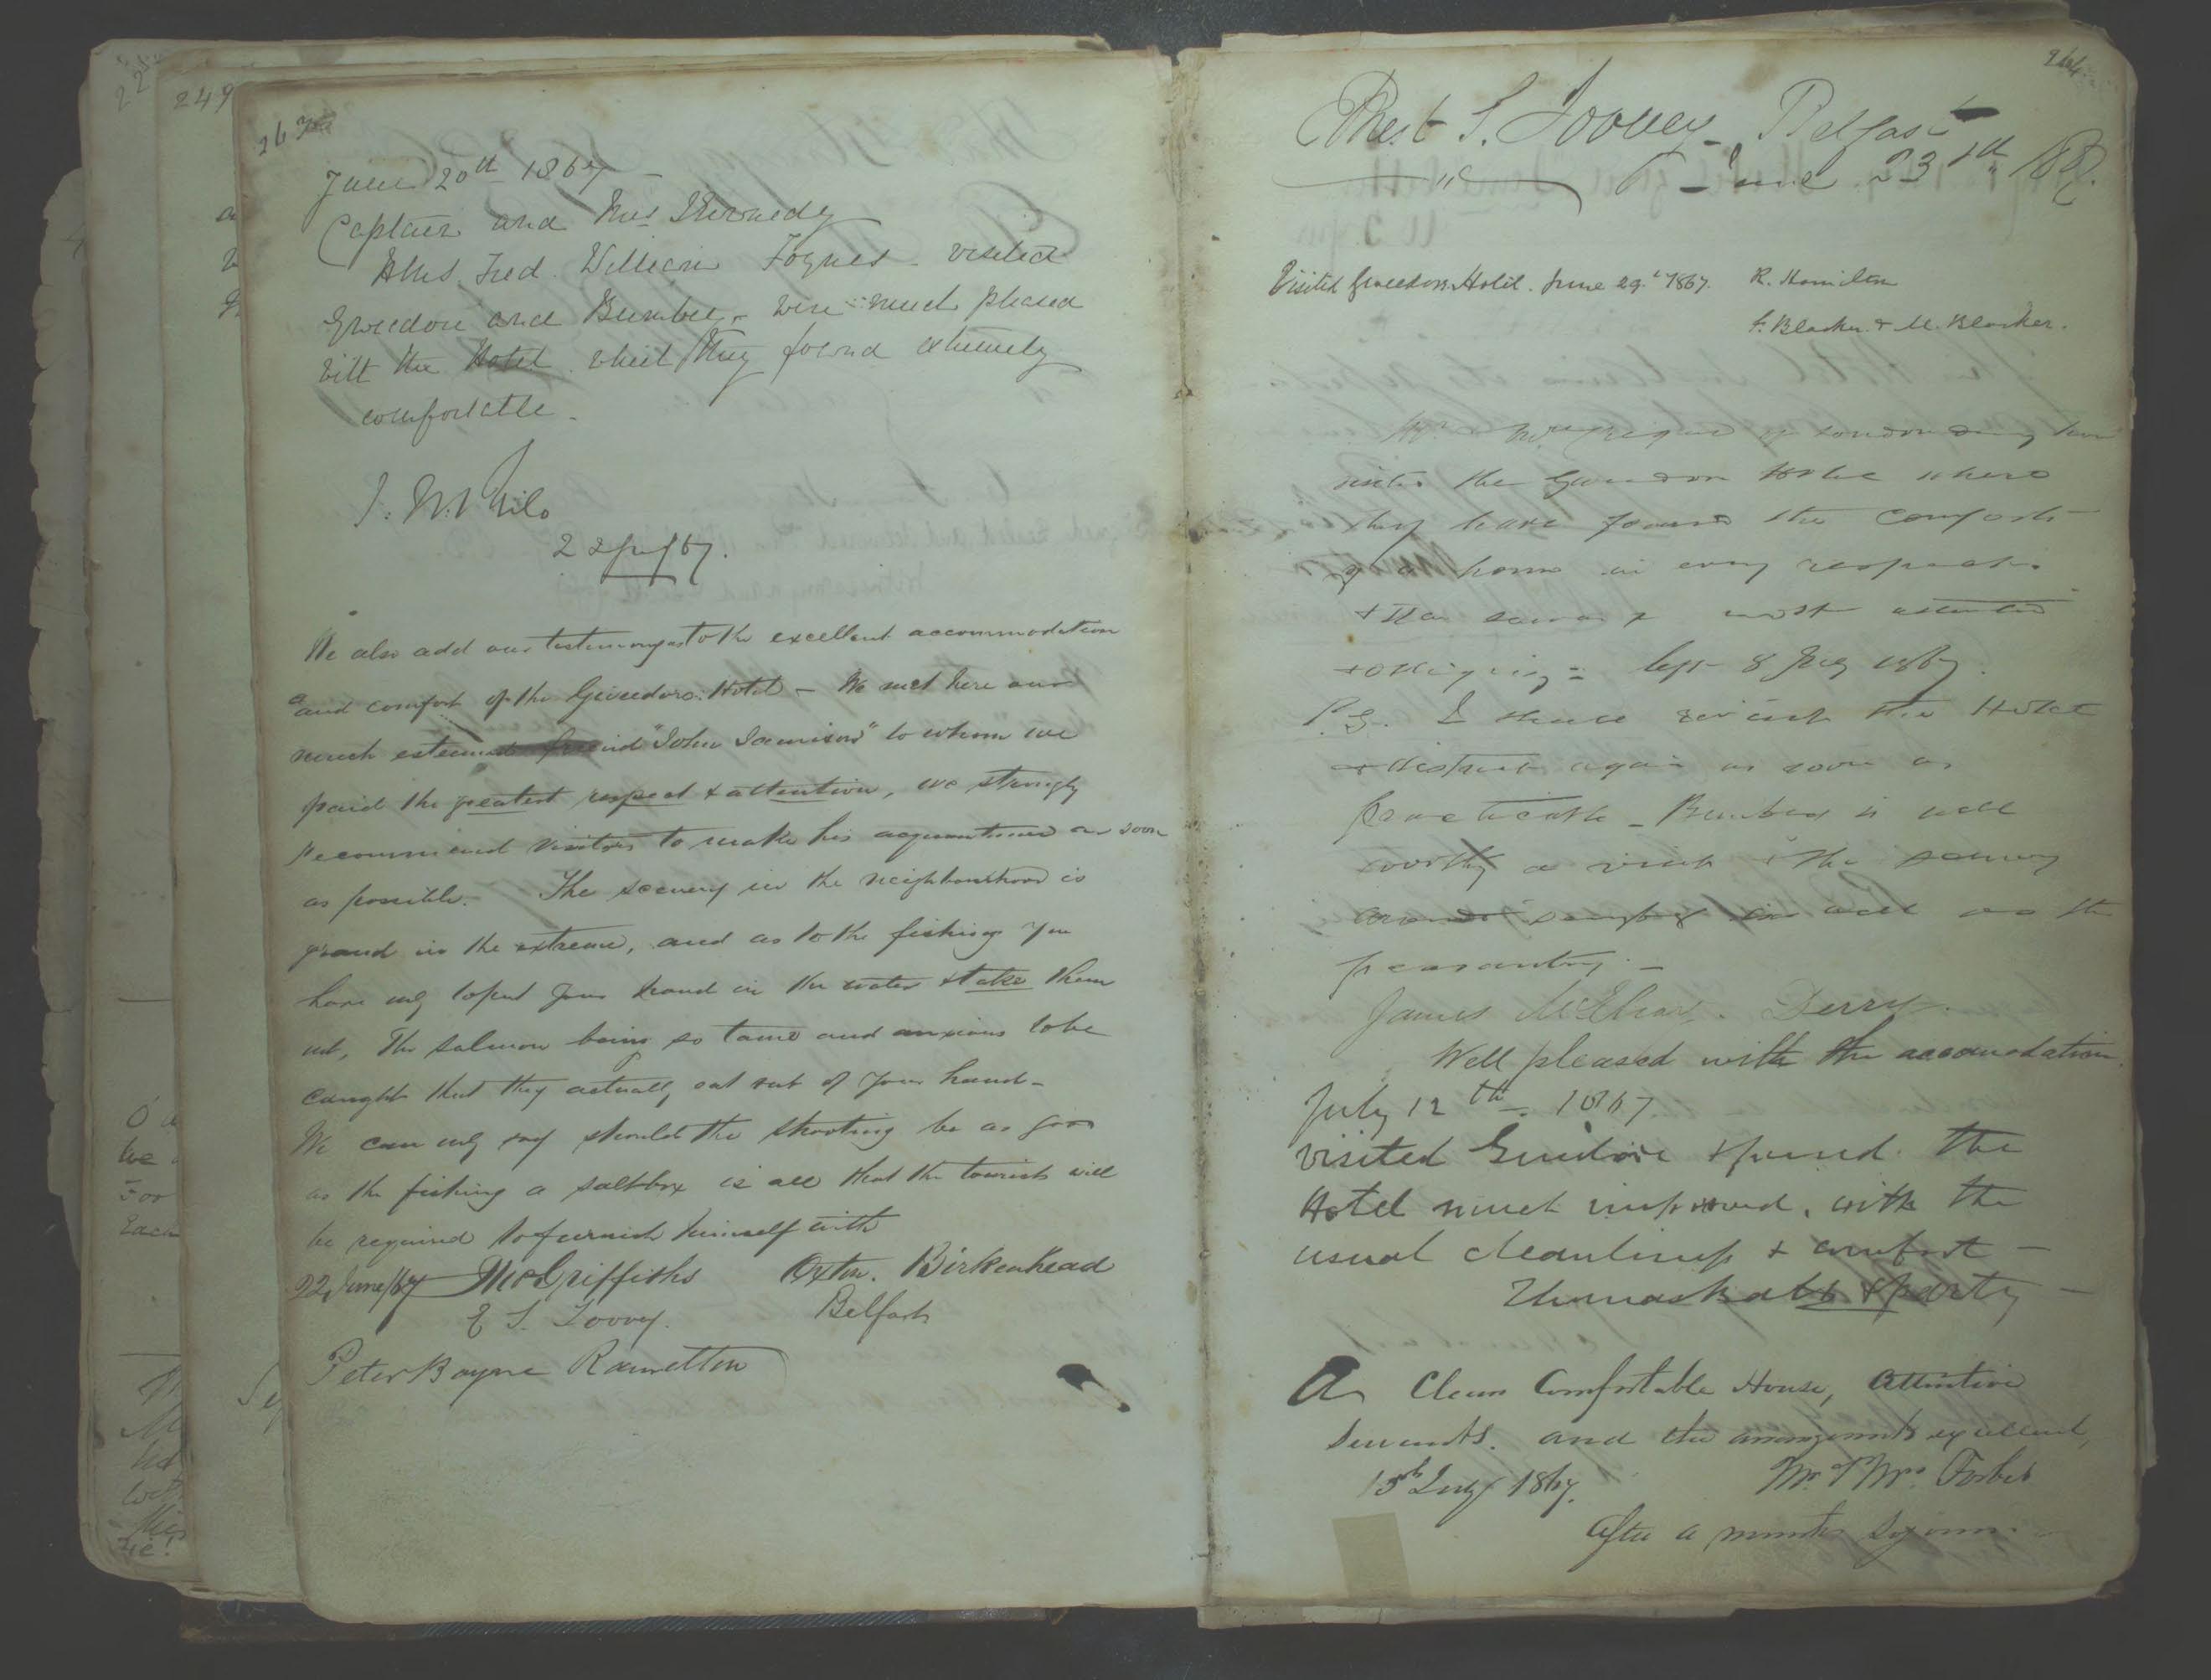 263
June 20th 1867
Captain and Mrs Kennedy
Fred William Foynes visited
Gweedore and Bunbeg, were much pleased
with the Hotel which they found extremely
comfortable.
22 June/67.
We also add our testimony as to the excellent accommodation
and comfort of the Gweedore Hotel — We met here our
much esteemed friend "John Jamison" to whom we
paid the greatest respect & attention, we strongly
recommend visitors to make his acquaintance as soon
as possible. The scenery in the neighbourhood is
grand in the extreme, and as to the fishing you
have only to put your hand in the water & take them
out, The salmon being so tame and anxious to be
caught that they actually eat out of your hand —
We can only say should the shooting be as good
as the fishing a saltbox is all that the tourists will
be required to furnish himself with
22, June/67 Griffiths Oxton. Birkenhead
E S. Toovey. Belfast
Peter Bayne Ramelton
264
S. Toovey Belfast
June 23rd 1867.
Visited Gweedore Hotel. June 29th 1867. R. Hamilton
F. Blacker & M. Blacker.
Mr & Mrs of London
visited the Gweedore Hotel where
they have found the comforts
of a home in every respect.
most attentive
& obliging = left 8 July 1867.
P.S. I shall revisit the Hotel
& district again as soon as
practicable — Bunbeg is well
worthy a visit & the scenery
as well as the
peasantry. —
James Derry.
Well pleased with the accomodation.
July 12th — 1867
visited Guidore & found the
Hotel much improved, with the
usual cleanliness & comfort —
Thomas & party —
A Clean Comfortable House, Attentive
Servants. and the arrangements excellent,
15th July 1867. Mr. & Mrs. Forbes
After a months Sojourn.